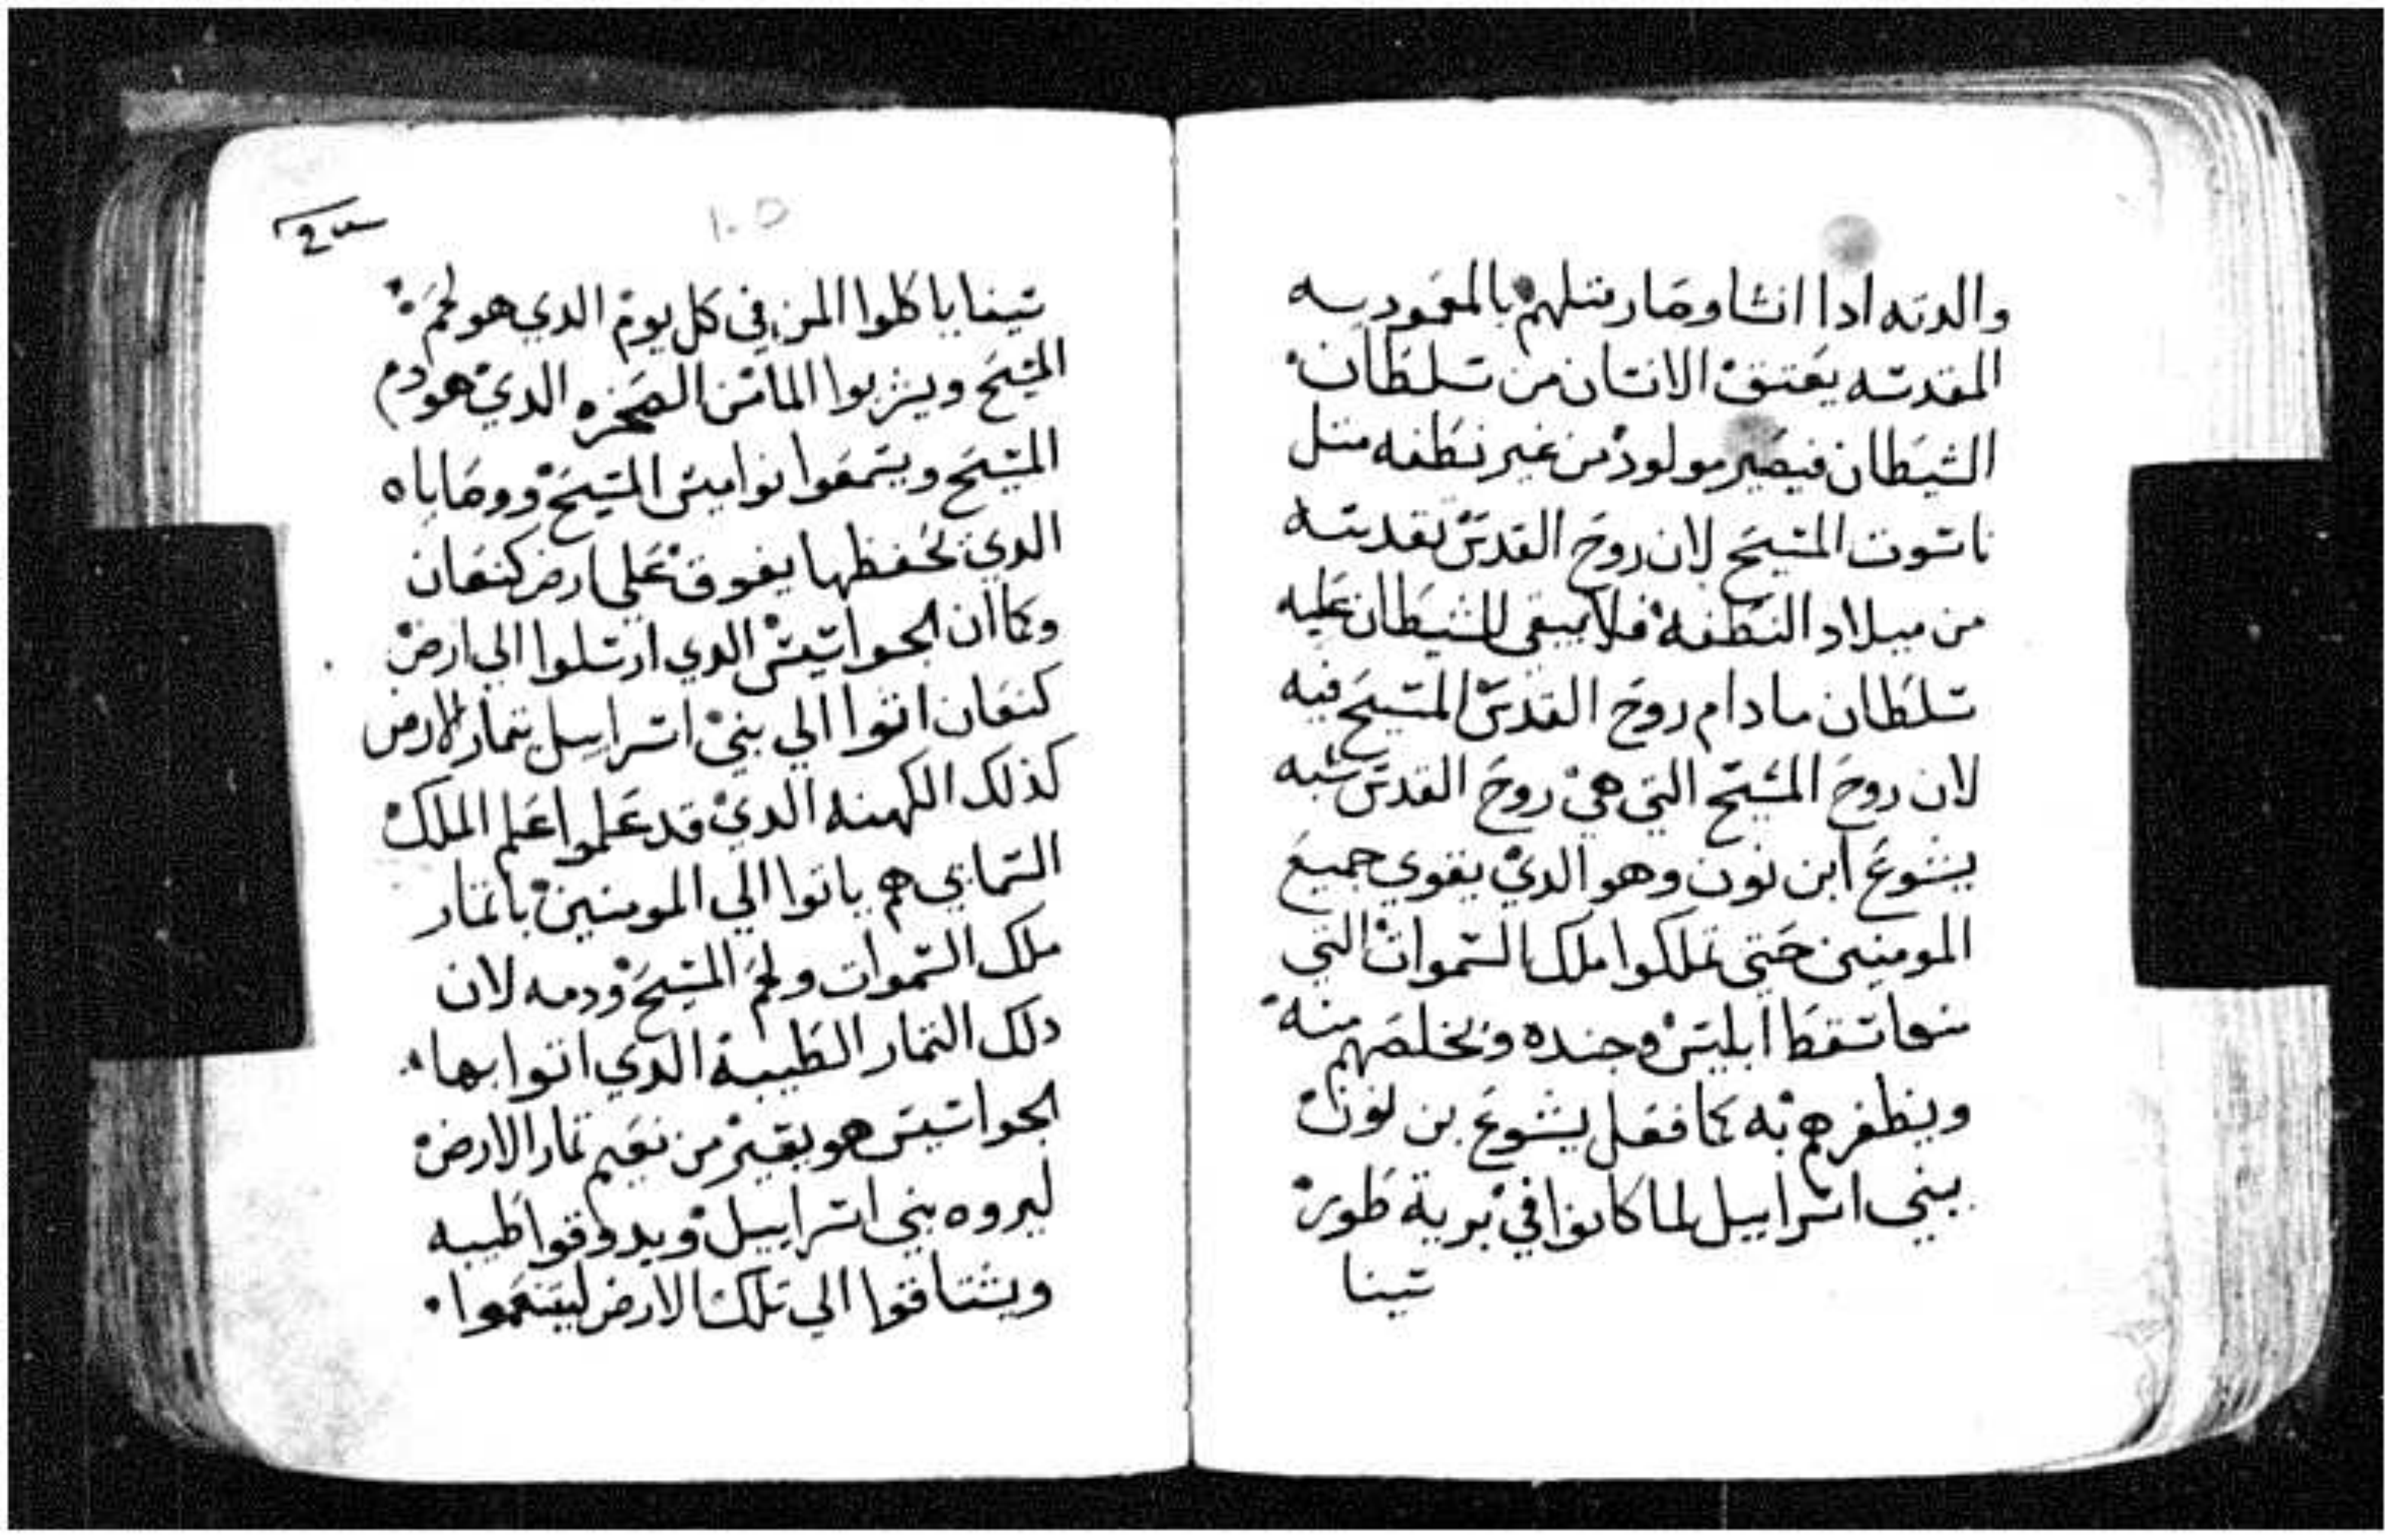 والدته ادا انشا وصار متلهم بالمعموديه
المقدسه يعتق الانسان من سلطان
الشيطان فيصير مولود من غير نطفه متل
ناسوت المسيح لان روح القدس تقدسه
من ميلاد النطفه فلا يبقى للشيطان عليه
سلطان ما دام روح القدس المسيح فيه
لان روح المسيح التي هي روح القدس شبه
يشوع ابن نون وهو الدي يقوي جميع
المومنين حتى تملكوا ملك السموات التي
منها سقط ابليس وجنده ويخلصهم منه
ويظفرهم به كما فعل يشوع بن نون
ببني اسراييل لما كانوا في برية طور
سينا
١٠٥
سينا ياكلوا المن في كل يوم الدي هو لحم
المسيح ويشربوا الما من الصخره الدي هو دم
المسيح ويسمعوا نواميس المسيح ووصاياه
الدي تحفظها يفوق على ارض كنعان
وكما ان الجواسيس الدي ارسلوا الي ارض
كنعان اتوا الي بني اسراييل بتمار الارض
كذلك الكهنه الدي قد علموا علم الملك
السمايي هم ياتوا الي المومنين باتمار
ملك السموات ولحم المسيح ودمه لان
دلك التمار الطيبة الدي اتوا بها
الجواسيس هو يقير من نعيم تمار الارض
ليروه بني اسراييل ويدوقوا طيبه
ويشتاقوا الي تلك الارض ليتنعموا